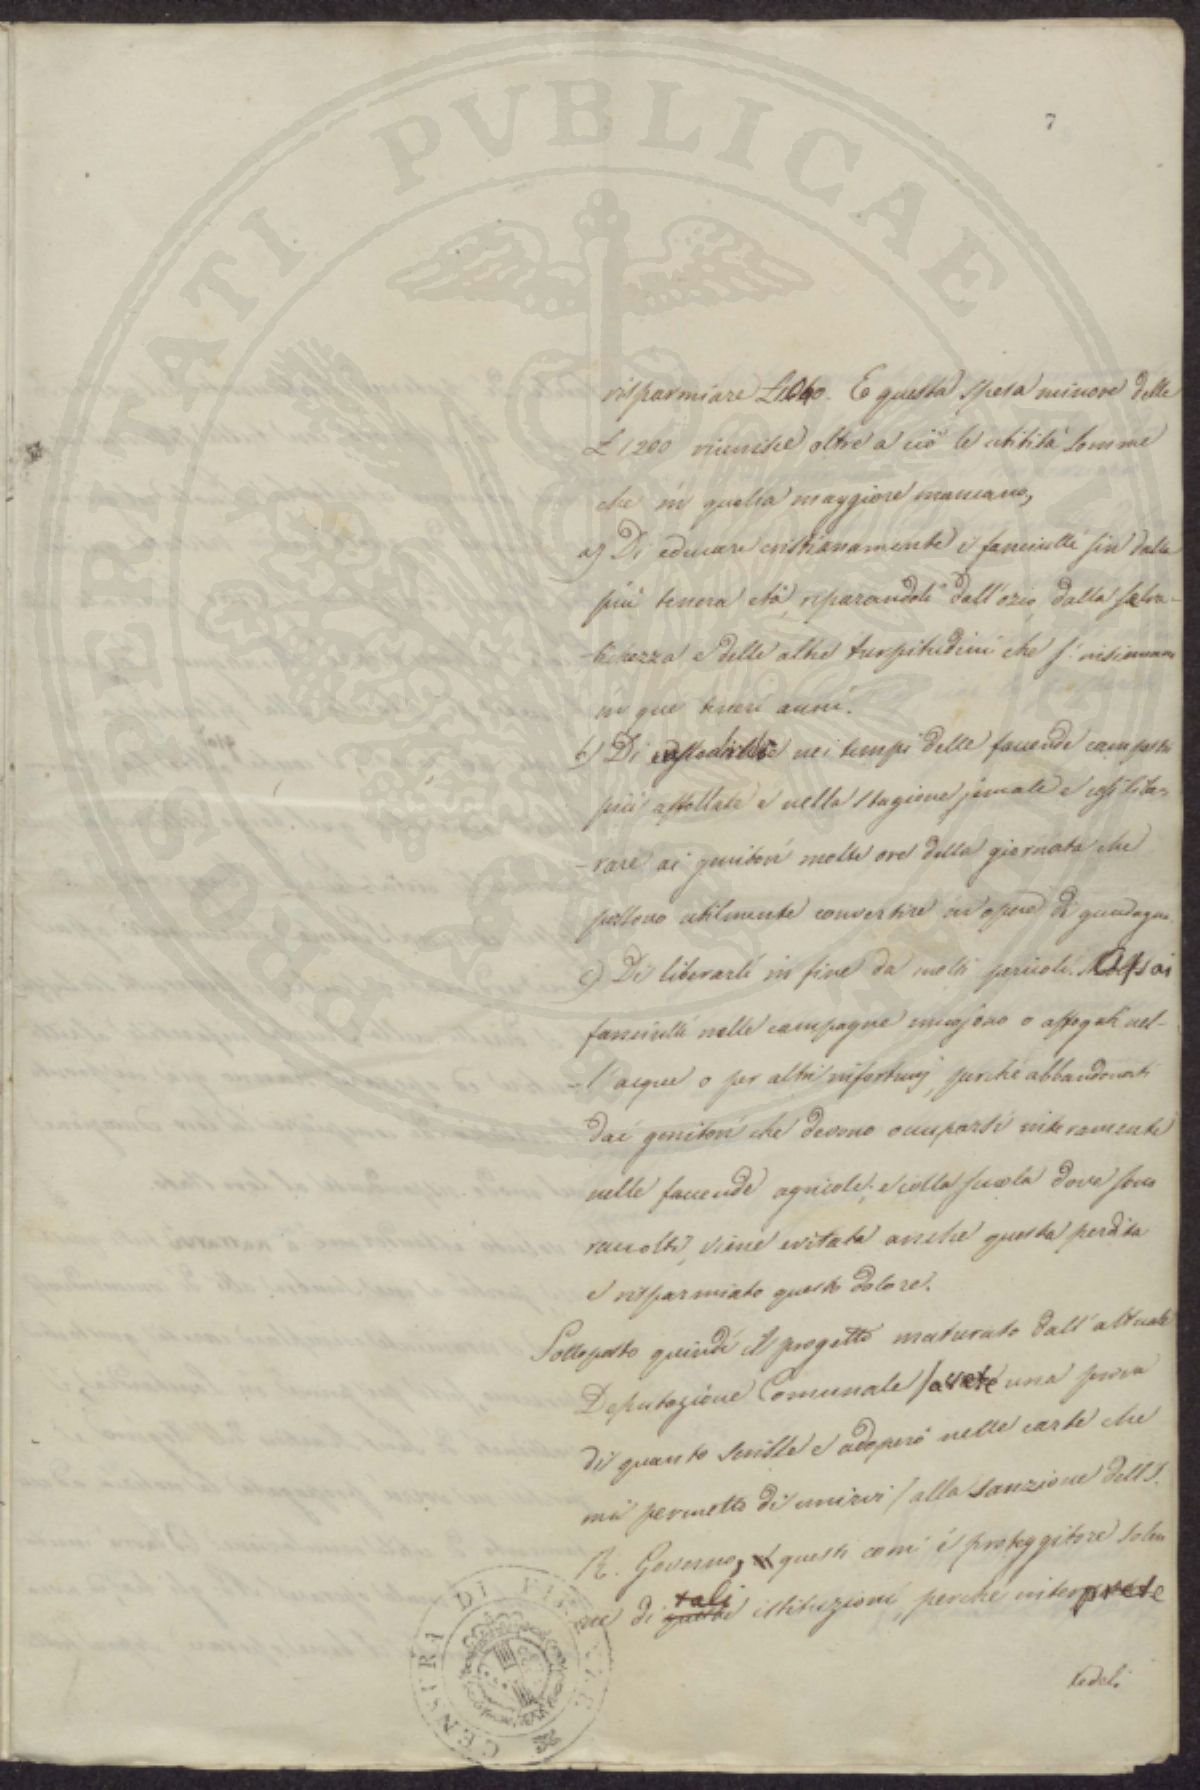 7
risparmiare L. 

E questa spesa minore delle
L 1200 riunisce oltre a ciò le utilità somme
che in quella maggiore mancano,
a) Di educare cristianamente i fanciulli sin dalla
più tenera età, riparandoli dall'ozio dalla selva-
-tichezza e delle altre turpitudini che s'insinuano
in que' teneri anni.
b) Di nei tempi delle faccende campestri
più affollate e nella stagione jemale e così libe-
-rare ai genitori molte ore della giornata che
possono utilmente convertire in opere di guadagno.
c) Di liberarli in fine da molti pericoli. Assai
fanciulli nelle campagne muojono o affogati nel-
-l'acque o per altri infortunj, perchè abbandonati
dai genitori che devono occuparsi interamente
nelle faccende agricole; e colla scuola dove sono
raccolti, viene evitata anche questa perdita
e risparmiato questo dolore.
Sottoposto quindi il progetto maturato dall'attuale
Deputazione Comunale /avete una prova
di quanto scrisse e adoperò nelle carte che
mi permetto di unirvi/ alla sanzione dell'I.
R. Governo, questi com'è proteggitore solen
ne di tali istituzioni, perchè interprete
fedeli
POSTERITATI PVBLICAE
CENSURA DI